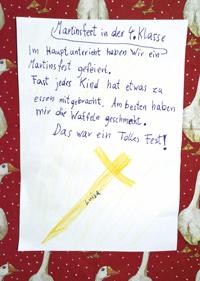 Martinsfest in der 4. Klasse
Im Hauptunterricht haben wir ein
Martinsfest gefeiert.
Fast jedes Kind hat etwas zu
essen mitgebracht. Am besten haben
mir die Waffeln geschmeckt.
Das war ein Tolles Fest!
LUISA